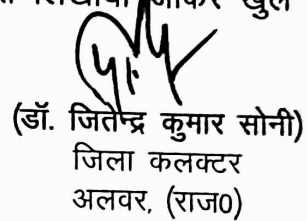 जाकर खुल
(डॉ. जितेन्द्र कुमार सोनी)
जिला कलक्टर
अलवर, (राज0)